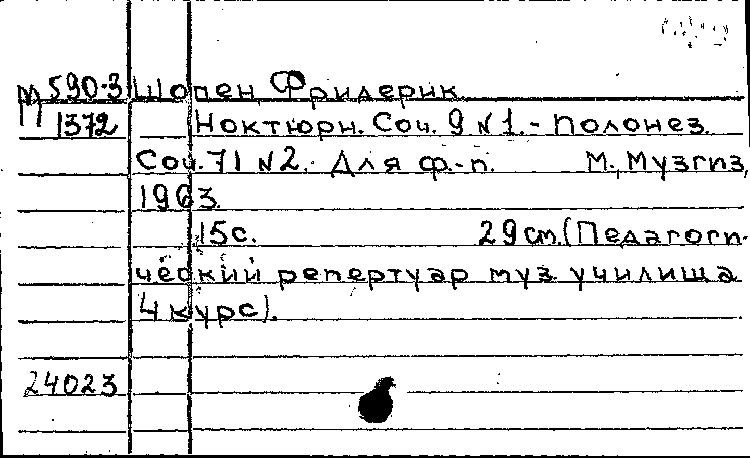 М 590-3 Шопен, Фридерик.
1372 Ноктюрн. Соч. 9 № 1. - Полонез.
Соч. 71 № 2. - Для ф.-п. М., Музгиз,
1963.
15 с. 29 см. (Педагоги-
ческий репертуар муз. училища
4 курс).
24023